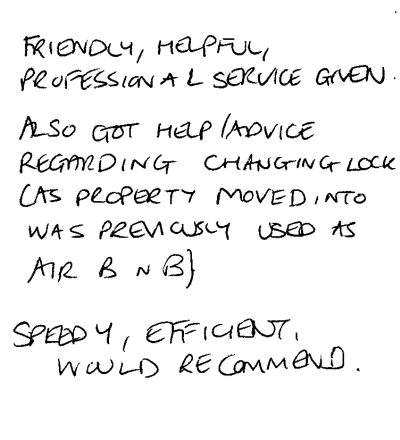 FRIENDLY, HELPFUL,
PROFESSIONAL SERVICE GIVEN.
ALSO GOT HELP/ADVICE
REGARDING CHANGING LOCK
(AS PROPERTY MOVED INTO
WAS PREVIOUSLY USED AS
AIR B N B)
SPEEDY, EFFICIENT,
WOULD RECOMMEND.